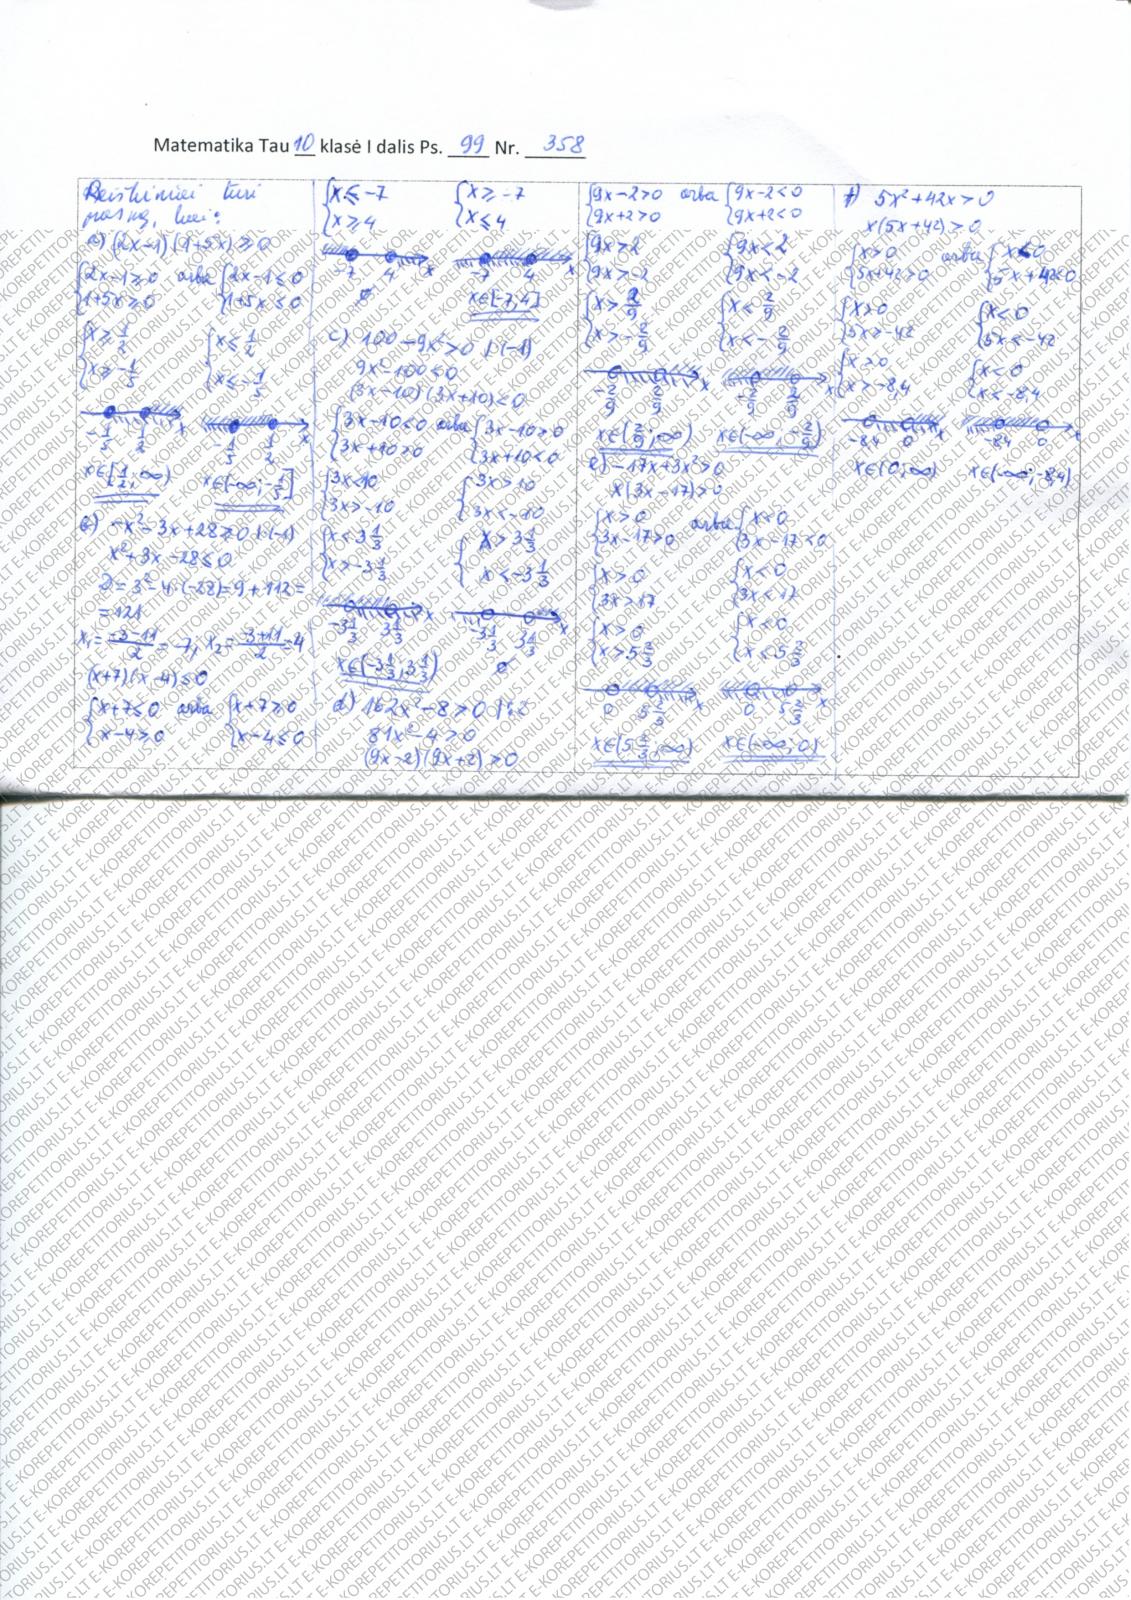 Matematika Tau 10 klasė I dalis Ps. 99 Nr. 358
Reiškiniai turi
prasmę, kai:
a) (2x-1)(1+5x)≥0
{2x-1≥0 arba {2x-1≤0
{1+5x≥0 {1+5x≤0
{x≥1/2 {x≤1/2
{x≥-1/5 {x≤-1/5
-1/5 1/2 x -1/5 1/2 x
x∈[1/2;∞) x∈(-∞;-1/5]
b) -x²-3x+28≥0 |·(-1)
x²+3x-28≤0
D=3²-4·(-28)=9+112=
=121
x₁=(-3-11)/2=-7, x₂=(-3+11)/2=4
(x+7)(x-4)≤0
{x+7≤0 arba {x+7≥0
{x-4≥0 {x-4≤0
{x≤-7 {x≥-7
{x≥4 {x≤4
-7 4 x -7 4 x
∅ x∈[-7;4]
c) 100-9x²>0 |·(-1)
9x²-100<0
(3x-10)(3x+10)<0
{3x-10<0 arba {3x-10>0
{3x+10>0 {3x+10<0
{3x<10 {3x>10
{3x>-10 {3x<-10
{x<3 1/3 {x>3 1/3
{x>-3 1/3 {x<-3 1/3
-3 1/3 3 1/3 x -3 1/3 3 1/3 x
x∈(-3 1/3;3 1/3) ∅
d) 162x²-8>0 |:2
81x²-4>0
(9x-2)(9x+2)>0
{9x-2>0 arba {9x-2<0
{9x+2>0 {9x+2<0
{9x>2 {9x<2
{9x>-2 {9x<-2
{x>2/9 {x<2/9
{x>-2/9 {x<-2/9
-2/9 2/9 x -2/9 2/9 x
x∈(2/9;∞) x∈(-∞;-2/9)
e) -17x+3x²>0
x(3x-17)>0
{x>0 arba {x<0
{3x-17>0 {3x-17<0
{x>0 {x<0
{3x>17 {3x<17
{x>0 {x<0
{x>5 2/3 {x<5 2/3
0 5 2/3 x 0 5 2/3 x
x∈(5 2/3;∞) x∈(-∞;0)
f) 5x²+42x>0
x(5x+42)>0
{x>0 arba {x<0
{5x+42>0 {5x+42<0
{x>0 {x<0
{5x>-42 {5x<-42
{x>0 {x<0
{x>-8,4 {x<-8,4
-8,4 0 x -8,4 0 x
x∈(0;∞) x∈(-∞;-8,4)
E-KOREPETITORIUS.LT